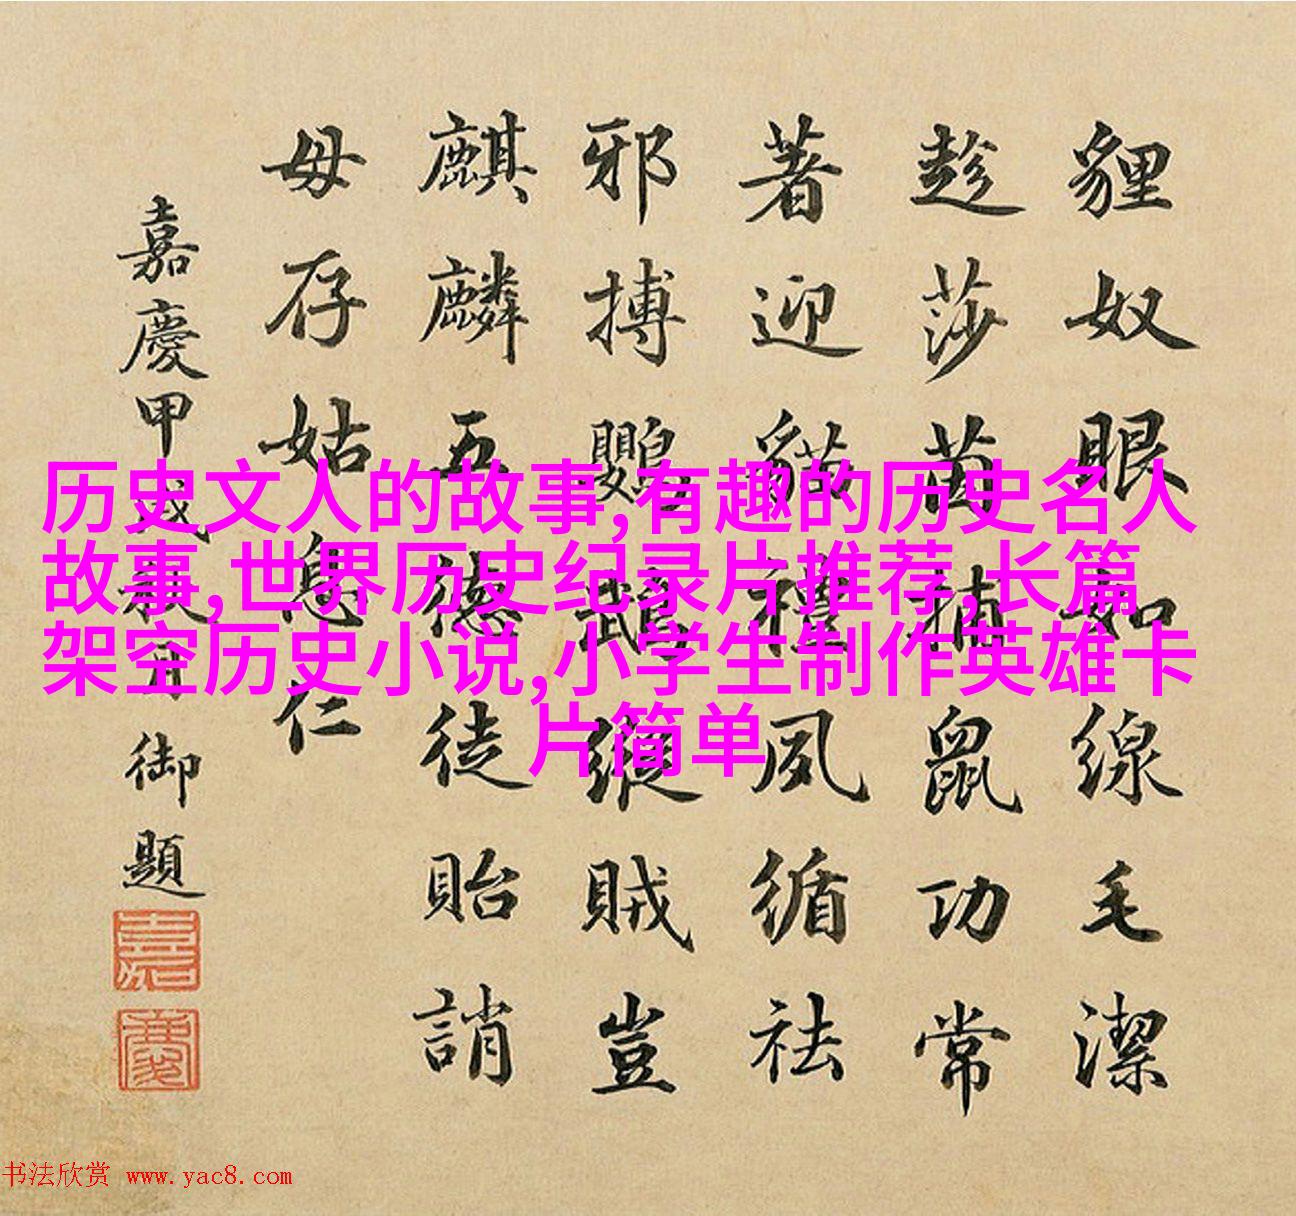 貍奴眼如線毛潔
趁莎茵捕鼠功常
著迎貓禮夙循祛
邪搏鸚鵡縱賊豈
麒麟五德徒貽誚
毋存姑息仁
嘉慶甲戌月御題
嘉
慶
历史文人的故事,有趣的历史名人
故事,世界历史纪录片推荐,长篇
架空历史小说,小学生制作英雄卡
片简单
书法欣赏 www.yac8.com